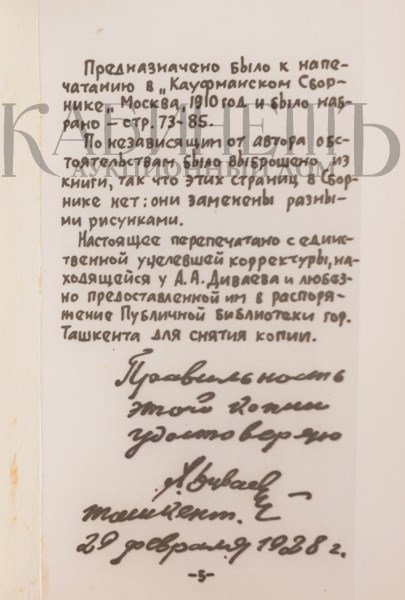 Предназначено было к напе-
чатанию в „Кауфманском Сбор-
нике„ Москва, 1910 год и было наб-
рано – стр. 73-85.
КАБИНЕТЪ
АУКЦИОННЫЙ ДОМ
По независящим от автора обс-
тоятельствам было выброшено из
книги, так что этих страниц в Сбор-
нике нет: они заменены разны-
ми рисунками.
Настоящее перепечатано с единс-
твенной уцелевшей корректуры, на-
ходящейся у А.А. Диваева и любез-
но предоставленной им в распоря-
жение Публичной библиотеки гор.
Ташкента для снятия копии.
Правильность
этой копии
удостоверяю
А. Диваев
Ташкент.
29 февраля 1928 г.
-5-